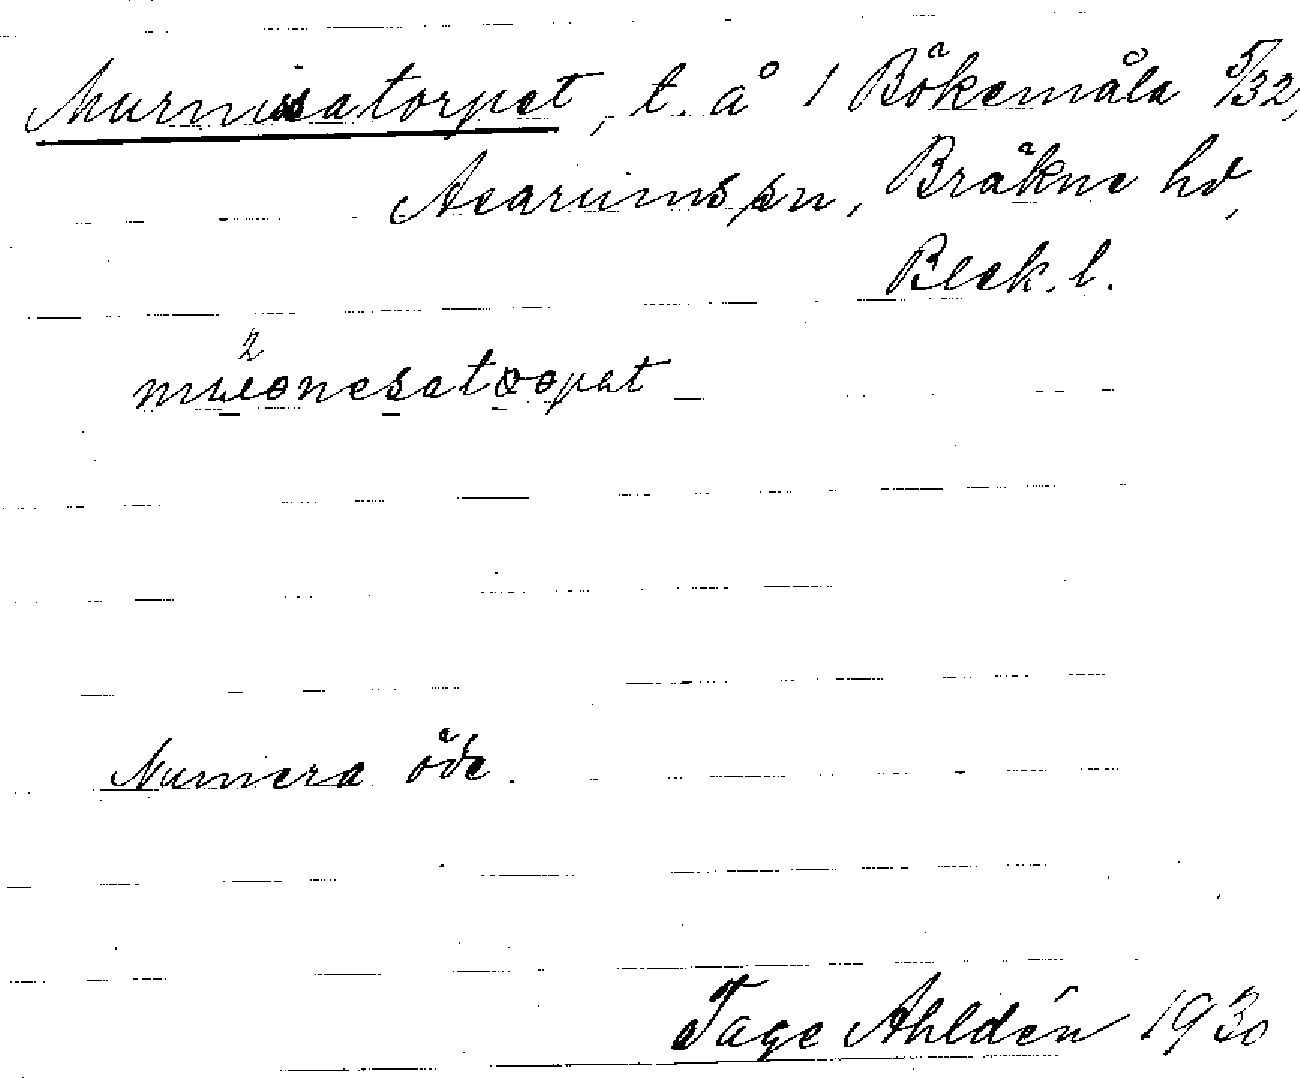 Murnisatorpet, t. å 1 Bökemåla 5/32,
Asarums sn, Bräkne hd,
Blek. l.
Numera öde.
Tage Ahldén 1930